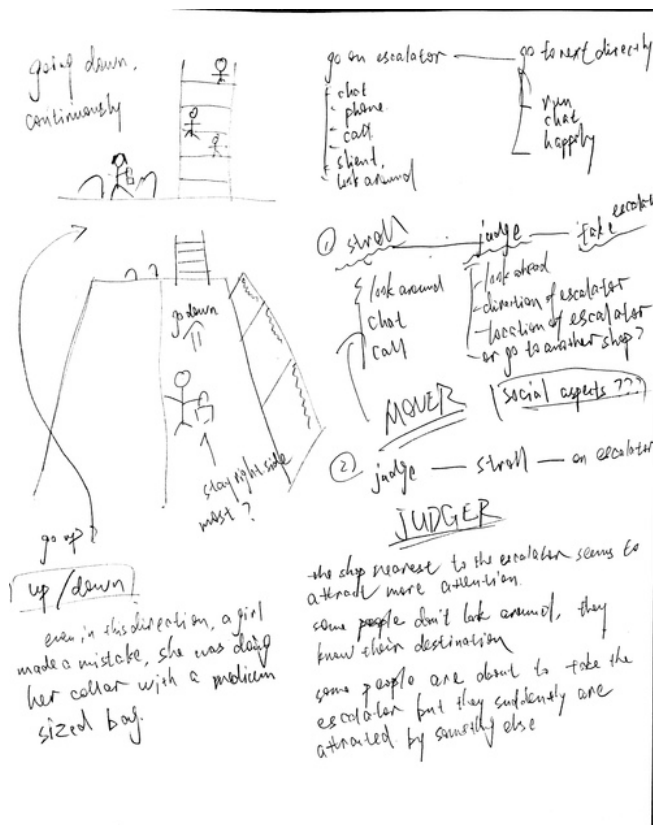 going down.
continuously
go down
stay right side
most?
go up?
up/down
even in this direction, a girl
made a mistake, she was doing
her collar with a medium
sized bag.
go on escalator — go to next directly
- chat
- phone
- call
- silent.
- look around
run
chat
happily
① stroll — judge — take escalator
look around
chat
call
- look ahead
- direction of escalator
- location of escalator
- or go to another shop?
MOVER
social aspects ???
② judge — stroll — on escalator
JUDGER
the shop nearest to the escalator seems to
attract more attention.
some people don't look around, they
know their destination
some people are about to take the
escalator but they suddently are
attracted by something else